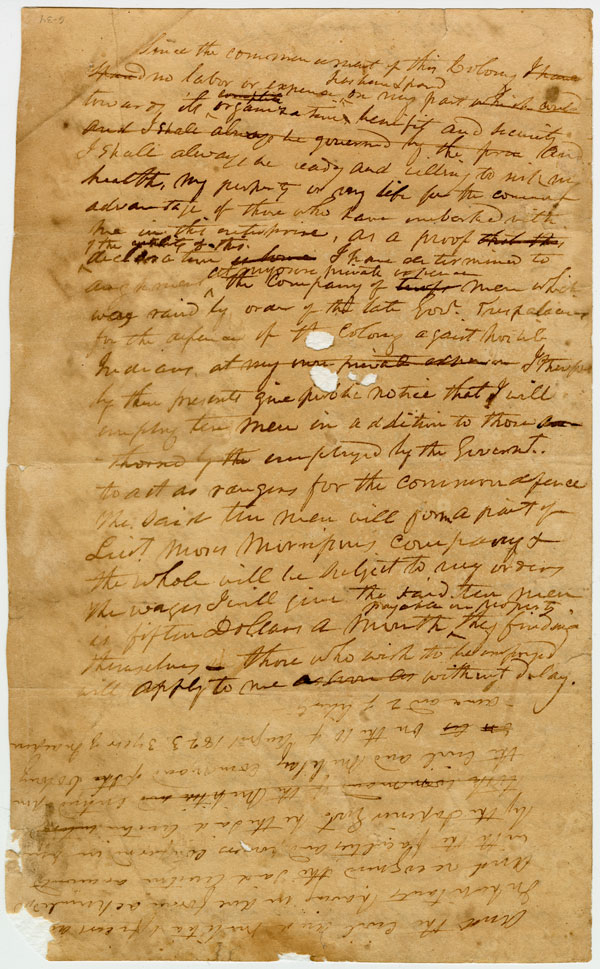 Since the commencement of this Colony I have
has been spared
no labor or expense on my part
towards its organization, benefit and security
and I shall always be governed by the
I shall always be ready and willing to risk my
health, my property or my life for the common
advantage of those who have embarked with
me in this enterprise, as a proof that this
of the reality of this
declaration I have determined to
at my own private expense
the Company of men which
was raised by order of the late Govr. Trespalacios
for the defence of the Colony against hostile
Indians at my own private I therefore
by these presents give public notice that I will
employ ten men in addition to those
employed by the Governt.
to act as rangers for the common defence
the said ten men will form a part of
Lieut. Moses Morrisons Company &
the whole will be subject to my orders
The wages I will give the said ten men
payable in property
is fifteen Dollars a Month they finding
themselves – those who wish to be employed
will apply to me as soon as without delay.
and the Civil and
Inhabitants having in due form
and recognised the said Austin
with the faculties and powers
by the Govt. he the said Austin
of the
the Civil and Military command of the Colony
on the 10 of August 1823 3 year of
and 2 of